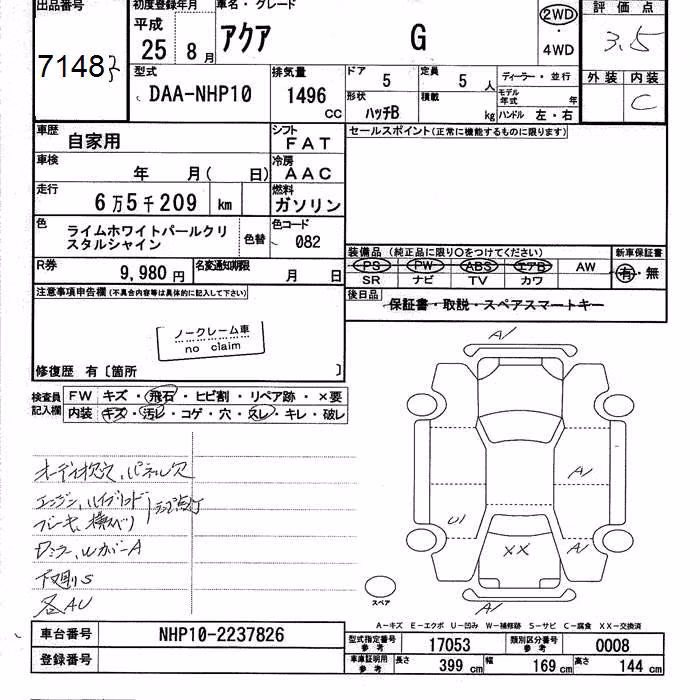 出品番号
7148
初度登録年月
平成
25年 8月
車名・グレード
アクア G
2WD
・
4WD
評価点
3.5
外装 内装
C
型式
DAA-NHP10
排気量
1496
CC
ドア
5
定員
5 人
形状
ハッチB
積載
kg
ディーラー・並行
モデル年式 年
ハンドル 左・右
車歴
自家用
シフト
FAT
車検
年 月( 日)
冷房
AAC
走行
6万5千209 km
燃料
ガソリン
色
ライムホワイトパールクリ
スタルシャイン
色替
色コード
082
R券
9,980円
名変通知期限
月 日
セールスポイント(正常に機能するものに限ります)
装備品 (純正品に限り○をつけてください)
PS PW ABS エアB AW
SR ナビ TV カワ
新車保証書
有・無
後日品
保証書・取説・スペアスマートキー
注意事項申告欄(不具合内容等は具体的に記入して下さい)
ノークレーム車
no claim
修復歴 有〔箇所 〕
検査員
記入欄
FW キズ・飛石・ヒビ割・リペア跡・×要
内装 キズ・汚レ・コゲ・穴・スレ・キレ・破レ
オーディオ欠、パネル欠
エンジン、ハイブリッド
ブレーキ、横スベリ
ランプ点灯
ドミラー、ルカバーA
下廻りS
各AU
A1
A1
U1
XX
A1
A1
スペア
A-キズ E-エクボ U-凹み W-補修跡 S-サビ C-腐食 XX-交換済
車台番号
NHP10-2237826
登録番号
型式指定番号
参考
17053
類別区分番号
参考
0008
車庫証明用
参考
長さ 399 cm 幅 169 cm 高さ 144 cm